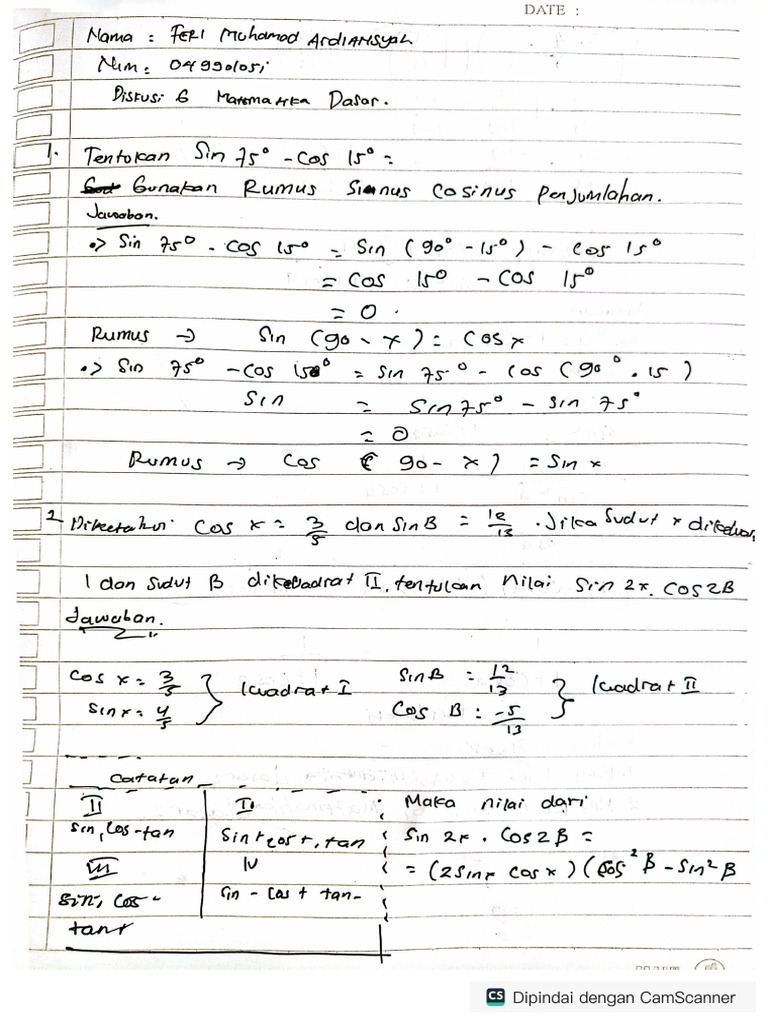 DATE :
Nama : FERI Muhamad ArdiANSyah
Nim : 049901051
Diskusi 6 Matematika Dasar.
1. Tentukan Sin 75° - Cos 15° =
Gunakan Rumus Sinus Cosinus Penjumlahan.
Jawaban.
•> Sin 75° - Cos 15° = Sin (90° - 15°) - Cos 15°
= Cos 15° - Cos 15°
= 0.
Rumus → Sin (90 - x) = Cos x
•> Sin 75° - Cos 15° = Sin 75° - Cos (90° . 15)
Sin = Sin 75° - Sin 75°
= 0
Rumus → Cos (90 - x) = Sin x
2 Diketahui Cos x = 3/5 dan Sin B = 12/13 . Jika Sudut x dikeduar
1 dan Sudut B dikuadrat II, tentukan Nilai Sin 2x. Cos 2B
Jawaban.
Cos x = 3/5 } kuadrat I Sin B = 12/13 } kuadrat II
Sin x = 4/5 Cos B : -5/13
Catatan
II I Maka nilai dari
Sin, Cos - tan Sin + cos +, tan Sin 2x . Cos 2B =
III IV = (2 Sin x Cos x) (Cos² B - Sin² B
Sin, Cos - Sin - Cos + tan -
tan +
CS Dipindai dengan CamScanner